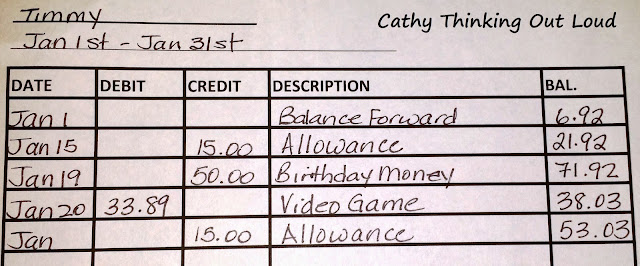 Timmy
Cathy Thinking Out Loud
Jan 1st - Jan 31st
DATE DEBIT CREDIT DESCRIPTION BAL.
Jan 1 Balance Forward 6.92
Jan 15 15.00 Allowance 21.92
Jan 19 50.00 Birthday Money 71.92
Jan 20 33.89 Video Game 38.03
Jan 15.00 Allowance 53.03